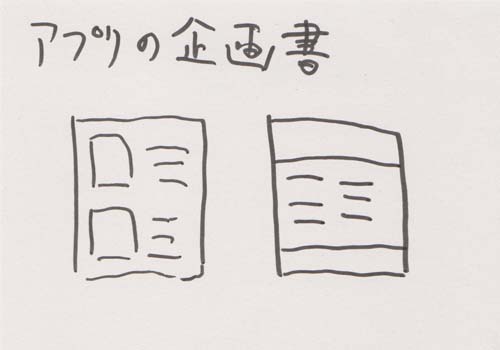 アプリの企画書